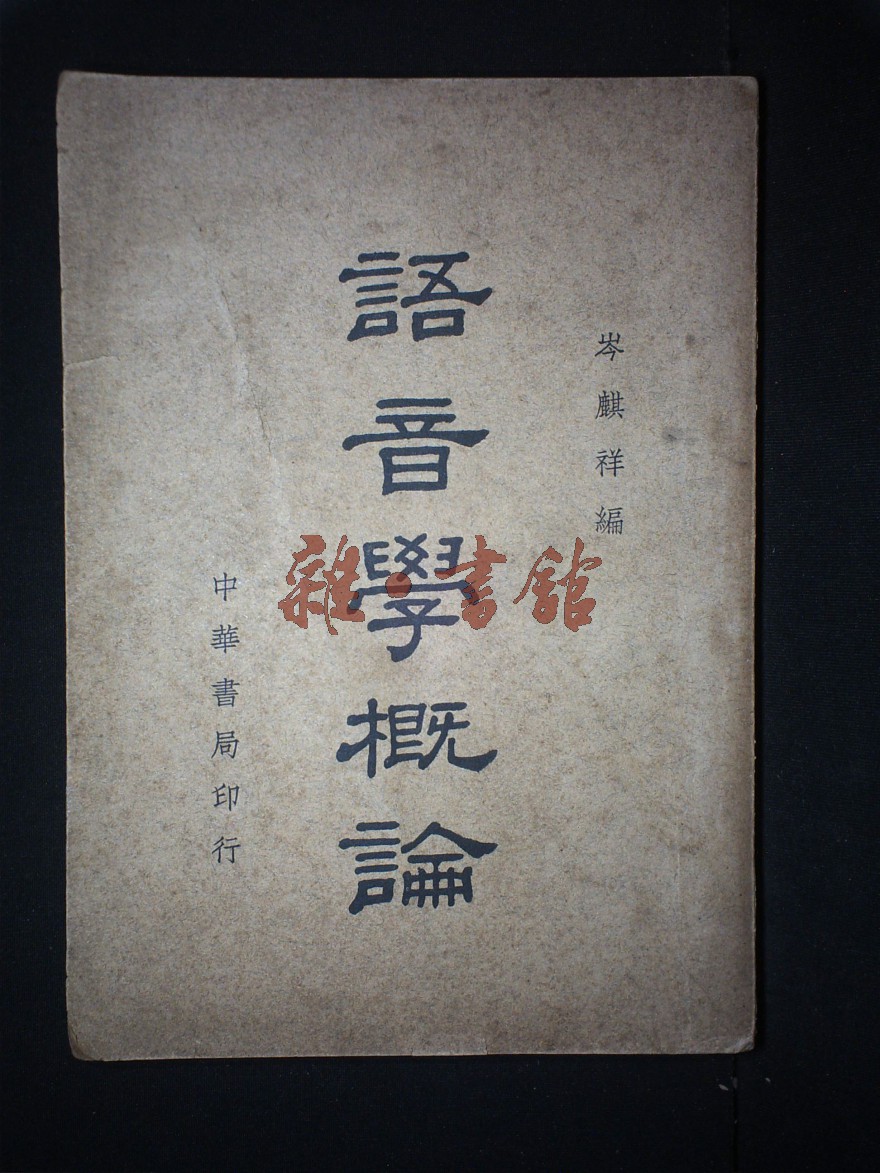 岑麒祥編
語音學概論
中華書局印行
雜·書館